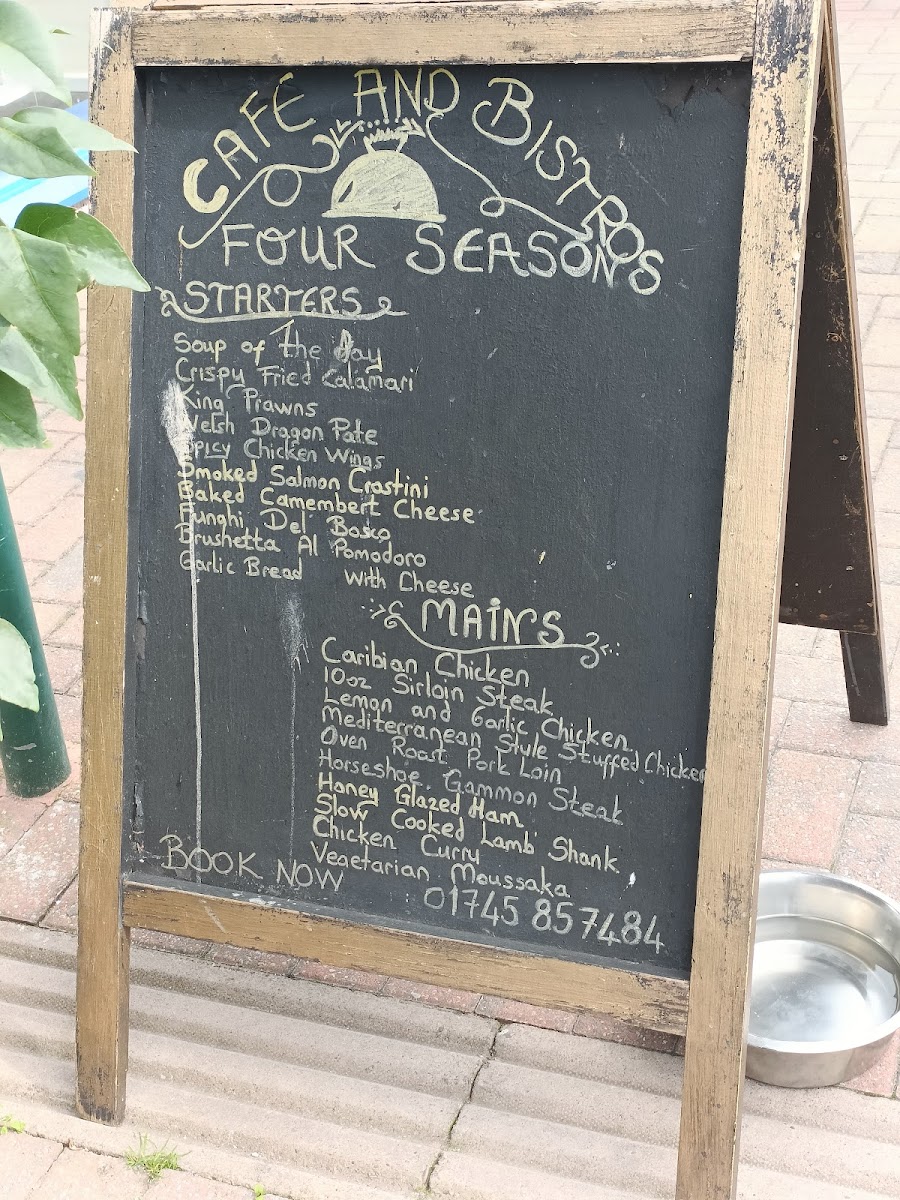 CAFE AND BISTROS
FOUR SEASONS
STARTERS
Soup of The day
Crispy Fried Calamari
King Prawns
Welsh Dragon Pate
Spicy Chicken Wings
Smoked Salmon Crostini
Baked Camembert Cheese
Funghi Del Bosco
Brushetta Al Pomodoro
Garlic Bread with Cheese
MAINS
Caribian Chicken
10oz Sirloin Steak
Lemon and Garlic Chicken
Mediterranean Style Stuffed Chicken
Oven Roast Pork Loin
Horseshoe Gammon Steak
Honey Glazed Ham
Slow Cooked Lamb Shank
Chicken Curry
Vegetarian Moussaka
BOOK NOW 01745 857484